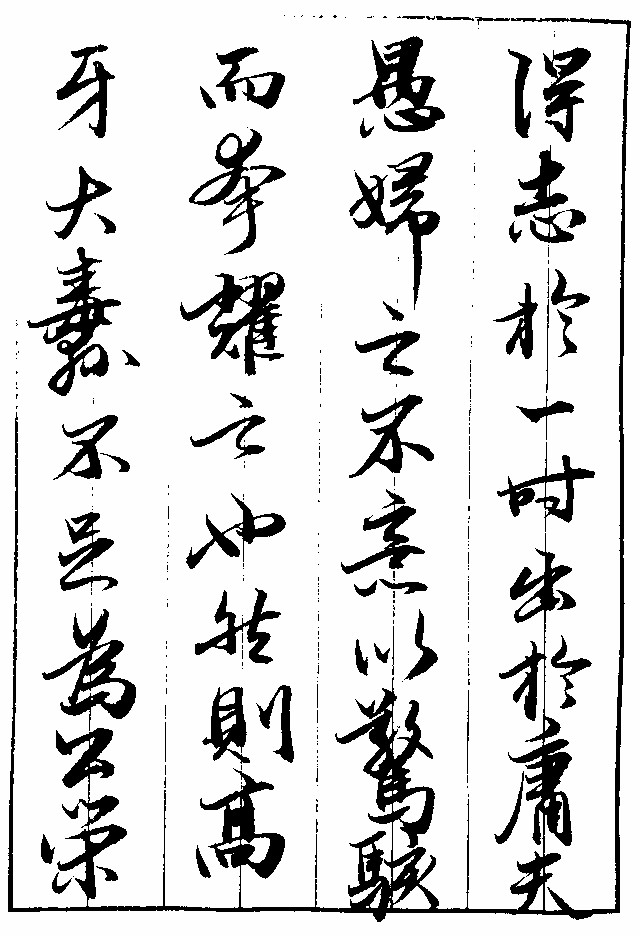 得志於一時出於庸夫
愚婦之不意以驚駭
而夸耀之也然則高
牙大纛不足為公榮